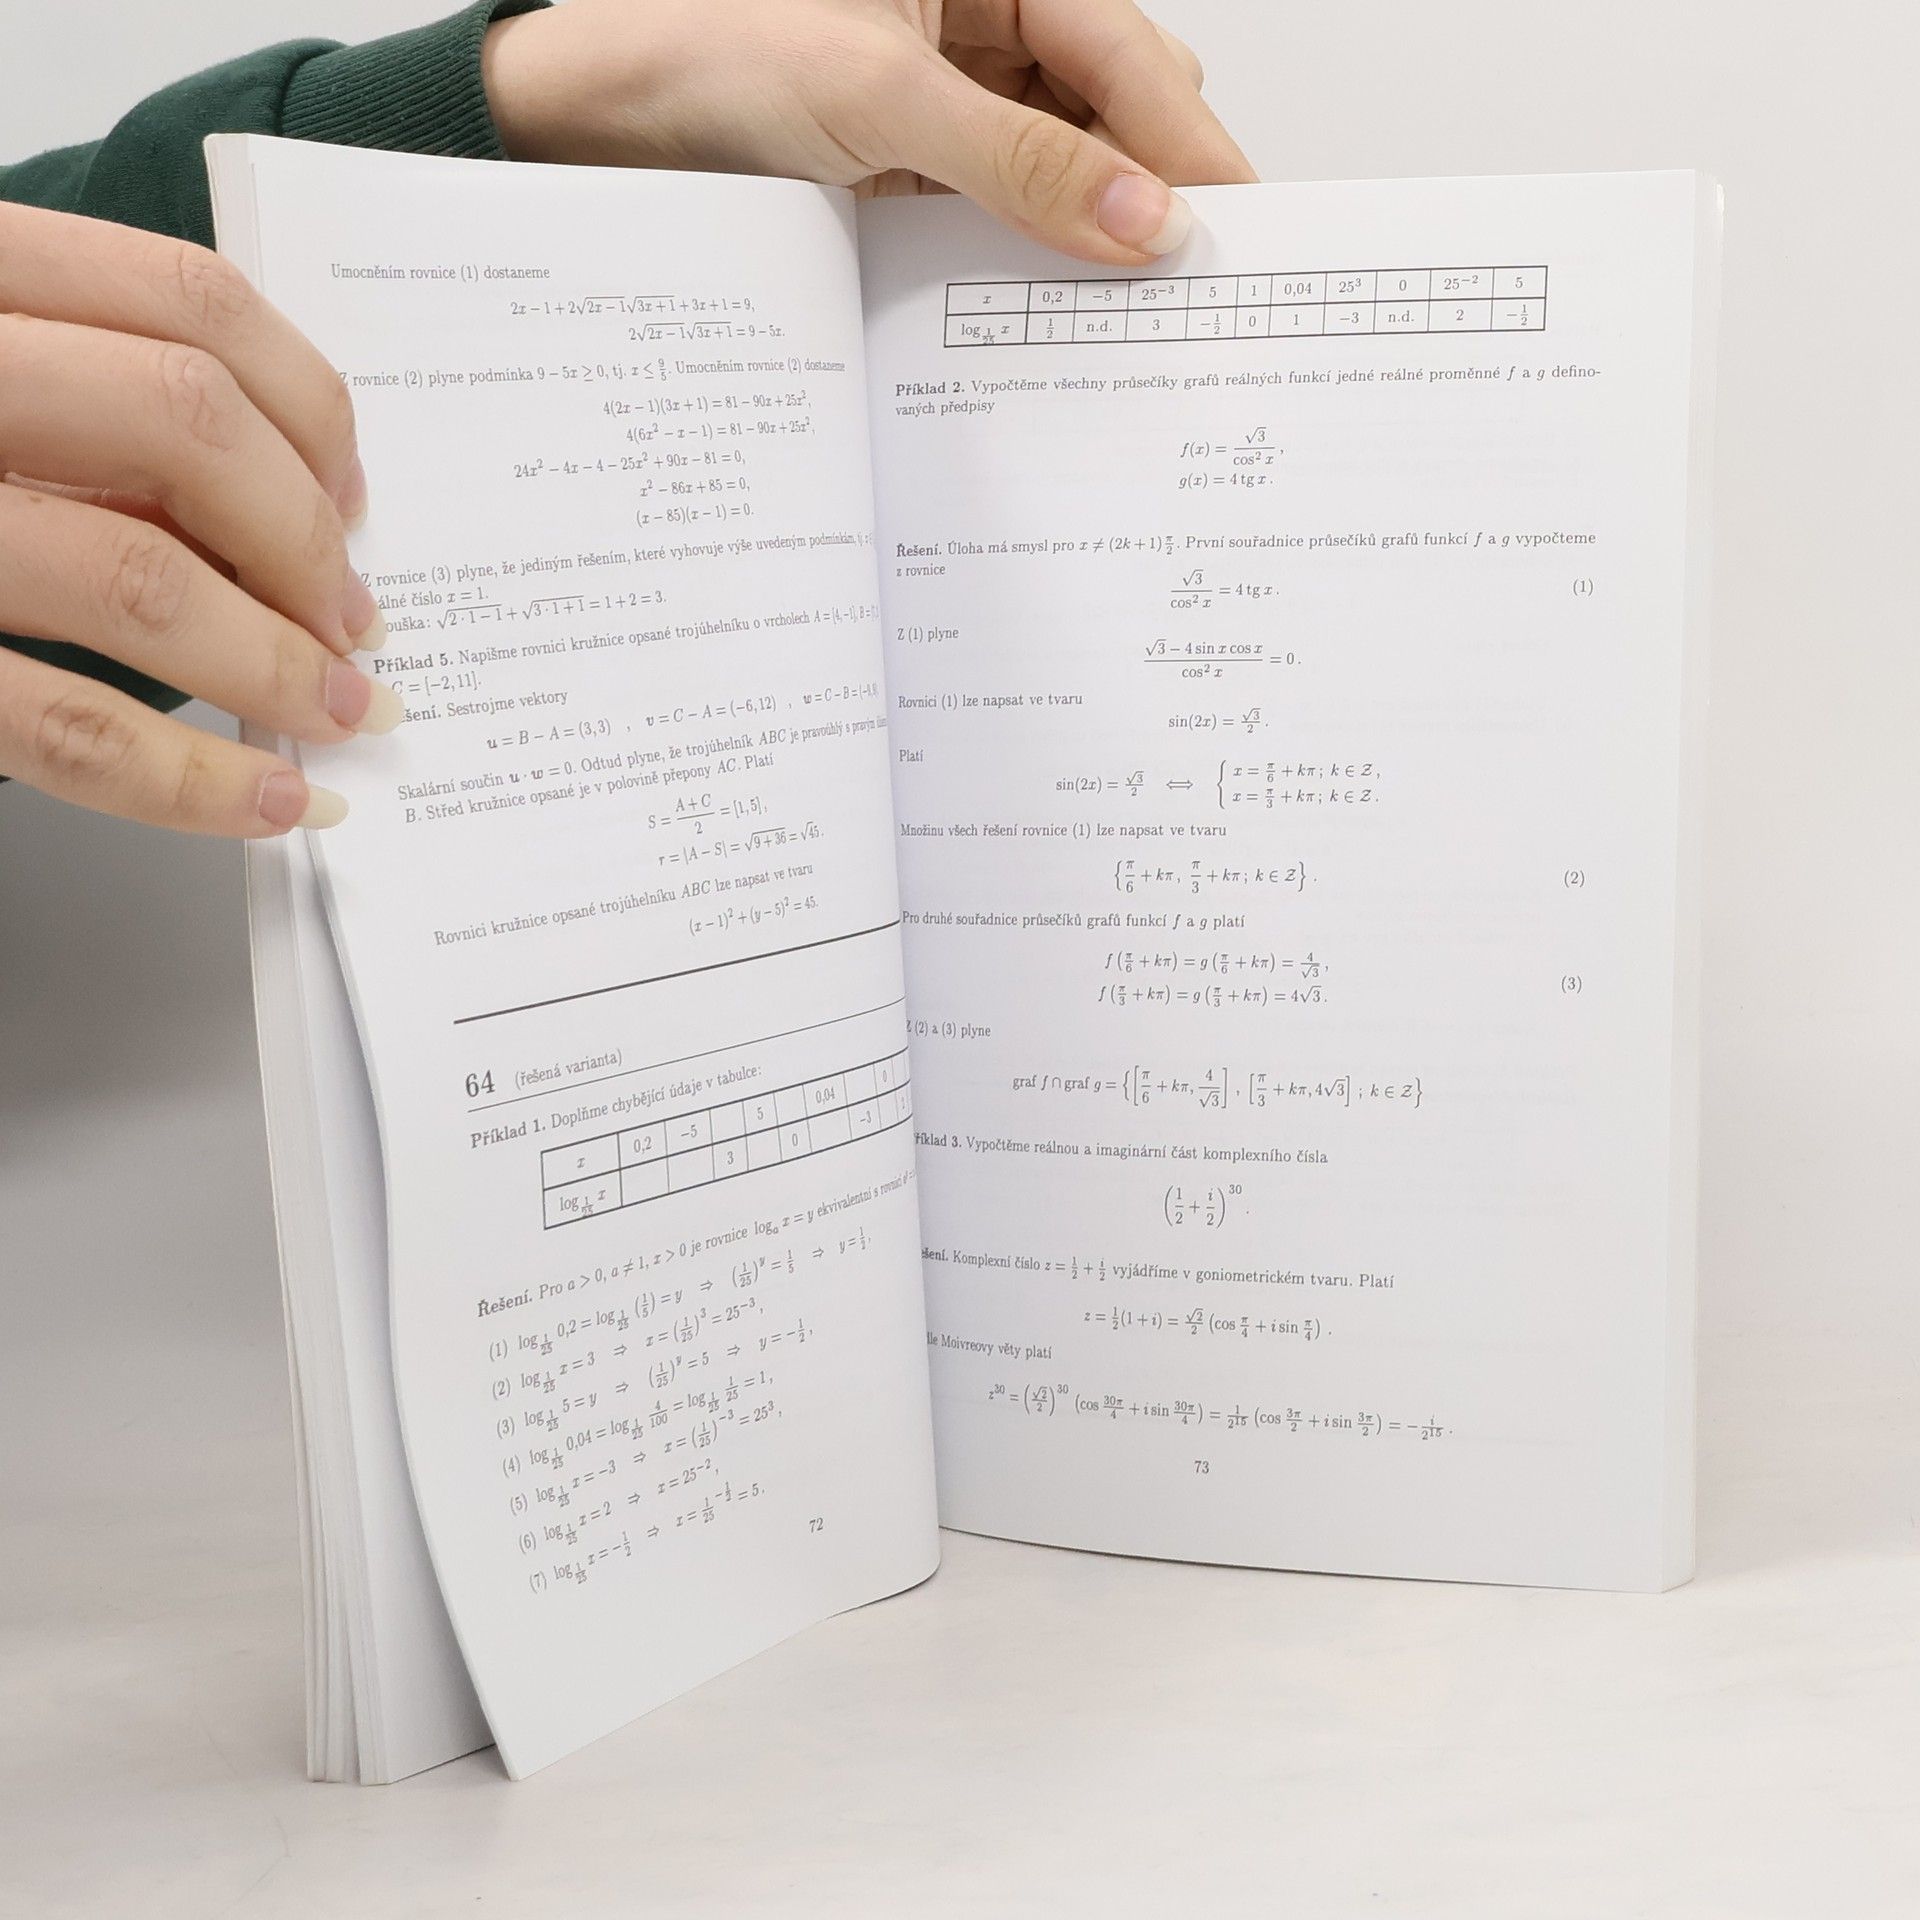 Umocněním rovnice (1) dostaneme
2x − 1 + 2√(2x − 1)√(3x + 1) + 3x + 1 = 9,
2√(2x − 1)√(3x + 1) = 9 − 5x.
Z rovnice (2) plyne podmínka 9 − 5x ≥ 0, tj. x ≤ 9/5. Umocněním rovnice (2) dostaneme
4(2x − 1)(3x + 1) = 81 − 90x + 25x²,
4(6x² − x − 1) = 81 − 90x + 25x²,
24x² − 4x − 4 − 25x² + 90x − 81 = 0,
x² − 86x + 85 = 0,
(x − 85)(x − 1) = 0.
Z rovnice (3) plyne, že jediným řešením, které vyhovuje výše uvedeným podmínkám, tj.
álné číslo x = 1.
ouška: √(2 · 1 − 1) + √(3 · 1 + 1) = 1 + 2 = 3.
Příklad 5. Napišme rovnici kružnice opsané trojúhelníku o vrcholech A = [4, −1], B =
C = [−2, 11].
šení. Sestrojme vektory
u = B − A = (3, 3) , v = C − A = (−6, 12) , w = C − B =
Skalární součin u · w = 0. Odtud plyne, že trojúhelník ABC je pravoúhlý s pravým
B. Střed kružnice opsané je v polovině přepony AC. Platí
S = (A + C)/2 = [1, 5],
r = |A − S| = √(9 + 36) = √45.
Rovnici kružnice opsané trojúhelníku ABC lze napsat ve tvaru
(x − 1)² + (y − 5)² = 45.
64 (řešená varianta)
Příklad 1. Doplňme chybějící údaje v tabulce:
x 0,2 −5 5 0,04 0
log_{1/25} x 3 0 −3 2
Řešení. Pro a > 0, a ≠ 1, x > 0 je rovnice logₐ x = y ekvivalentní s rovnicí
(1) log_{1/25} 0,2 = log_{1/25} (1/5) = y ⇒ (1/25)^y = 1/5 ⇒ y = 1/2,
(2) log_{1/25} x = 3 ⇒ x = (1/25)³ = 25⁻³,
(3) log_{1/25} 5 = y ⇒ (1/25)^y = 5 ⇒ y = −1/2,
(4) log_{1/25} 0,04 = log_{1/25} 4/100 = log_{1/25} 1/25 = 1,
(5) log_{1/25} x = −3 ⇒ x = (1/25)⁻³ = 25³,
(6) log_{1/25} x = 2 ⇒ x = 25⁻²,
(7) log_{1/25} x = −1/2 ⇒ x = 1/25^{−1/2} = 5.
72
x 0,2 −5 25⁻³ 5 1 0,04 25³ 0 25⁻² 5
log_{1/25} x 1/2 n.d. 3 −1/2 0 1 −3 n.d. 2 −1/2
Příklad 2. Vypočtěme všechny průsečíky grafů reálných funkcí jedné reálné proměnné f a g defino-
vaných předpisy
f(x) = √3/cos² x ,
g(x) = 4 tg x .
Řešení. Úloha má smysl pro x ≠ (2k + 1)π/2. První souřadnice průsečíků grafů funkcí f a g vypočteme
z rovnice
√3/cos² x = 4 tg x . (1)
Z (1) plyne
(√3 − 4 sin x cos x)/cos² x = 0 .
Rovnici (1) lze napsat ve tvaru
sin(2x) = √3/2 .
Platí
sin(2x) = √3/2 ⟺ { x = π/6 + kπ ; k ∈ Z ,
x = π/3 + kπ ; k ∈ Z .
Množinu všech řešení rovnice (1) lze napsat ve tvaru
{π/6 + kπ , π/3 + kπ ; k ∈ Z} . (2)
Pro druhé souřadnice průsečíků grafů funkcí f a g platí
f(π/6 + kπ) = g(π/6 + kπ) = 4/√3 ,
f(π/3 + kπ) = g(π/3 + kπ) = 4√3 . (3)
Z (2) a (3) plyne
graf f ∩ graf g = {[π/6 + kπ, 4/√3] , [π/3 + kπ, 4√3] ; k ∈ Z}
říklad 3. Vypočtěme reálnou a imaginární část komplexního čísla
(1/2 + i/2)³⁰ .
ešení. Komplexní číslo z = 1/2 + i/2 vyjádříme v goniometrickém tvaru. Platí
z = 1/2(1 + i) = √2/2 (cos π/4 + i sin π/4) .
dle Moivreovy věty platí
z³⁰ = (√2/2)³⁰ (cos 30π/4 + i sin 30π/4) = 1/2¹⁵ (cos 3π/2 + i sin 3π/2) = −i/2¹⁵ .
73